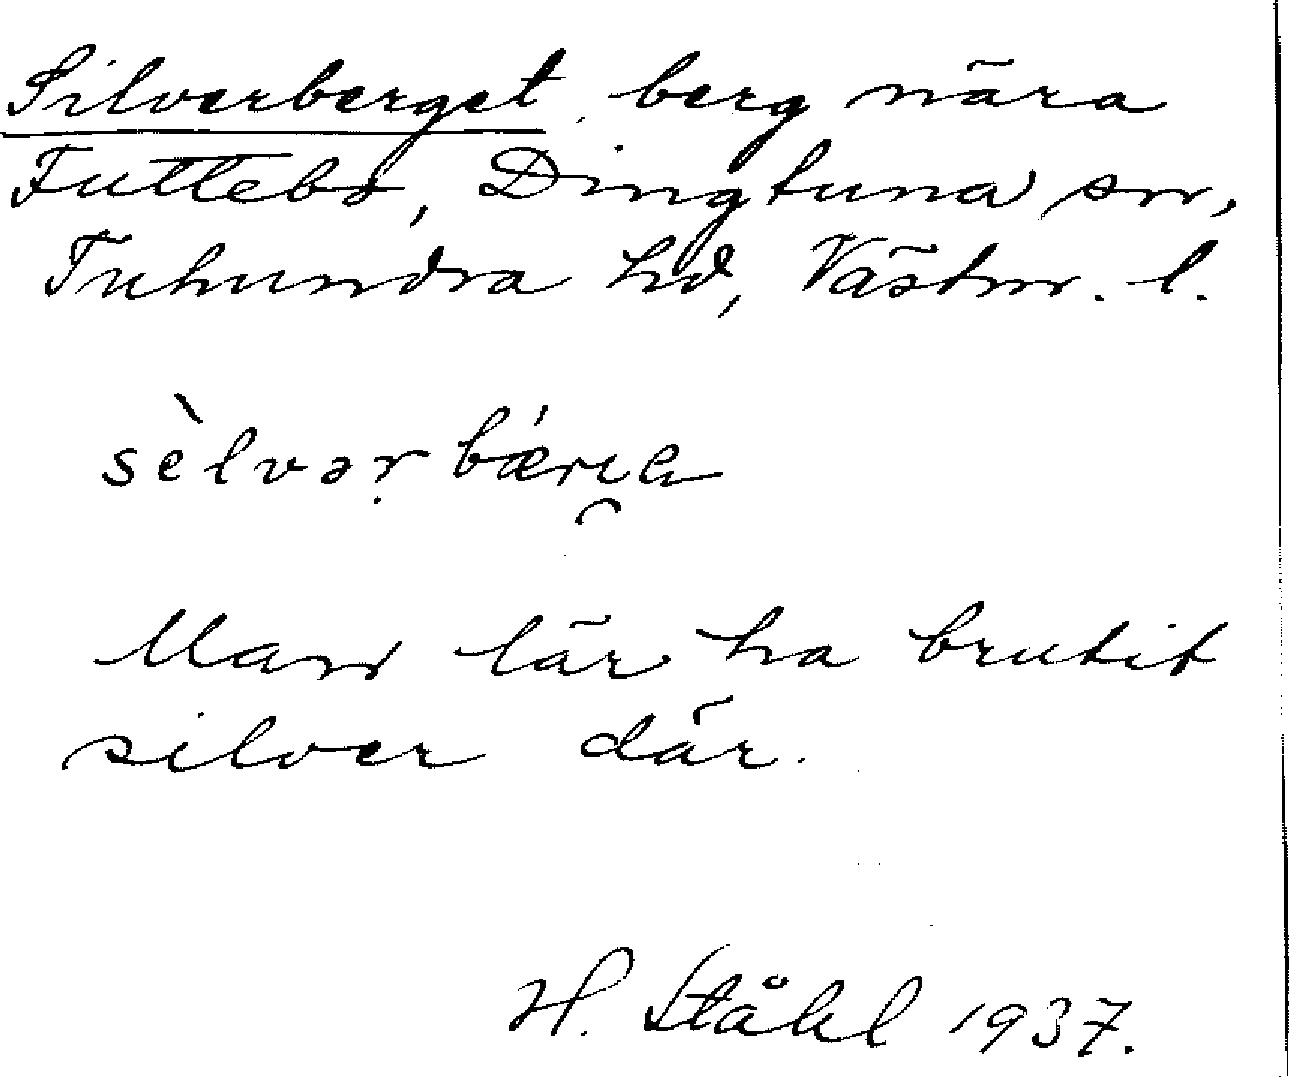 Silverberget, berg nära
Futtebo, Dingtuna sn,
Tuhundra hd, Västm. l.
sèlvər bǽrɪə
Man lär ha brutit
silver där.
H. Ståhl 1937.